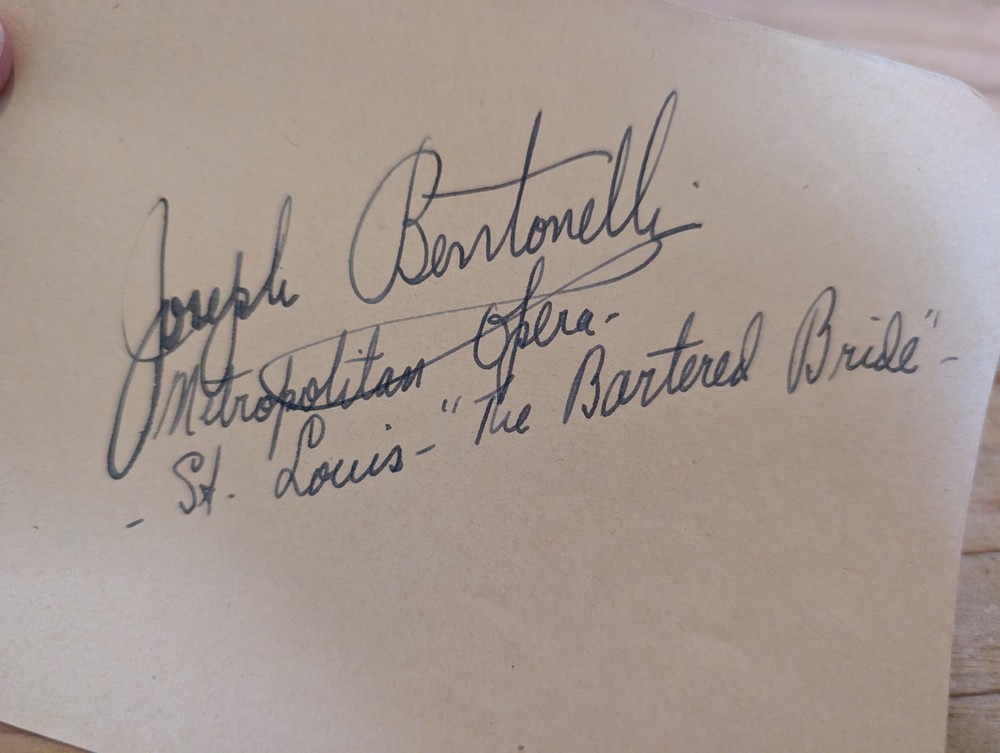 Joseph Bentonelli
Metropolitan Opera-
- St. Louis - "The Bartered Bride" -